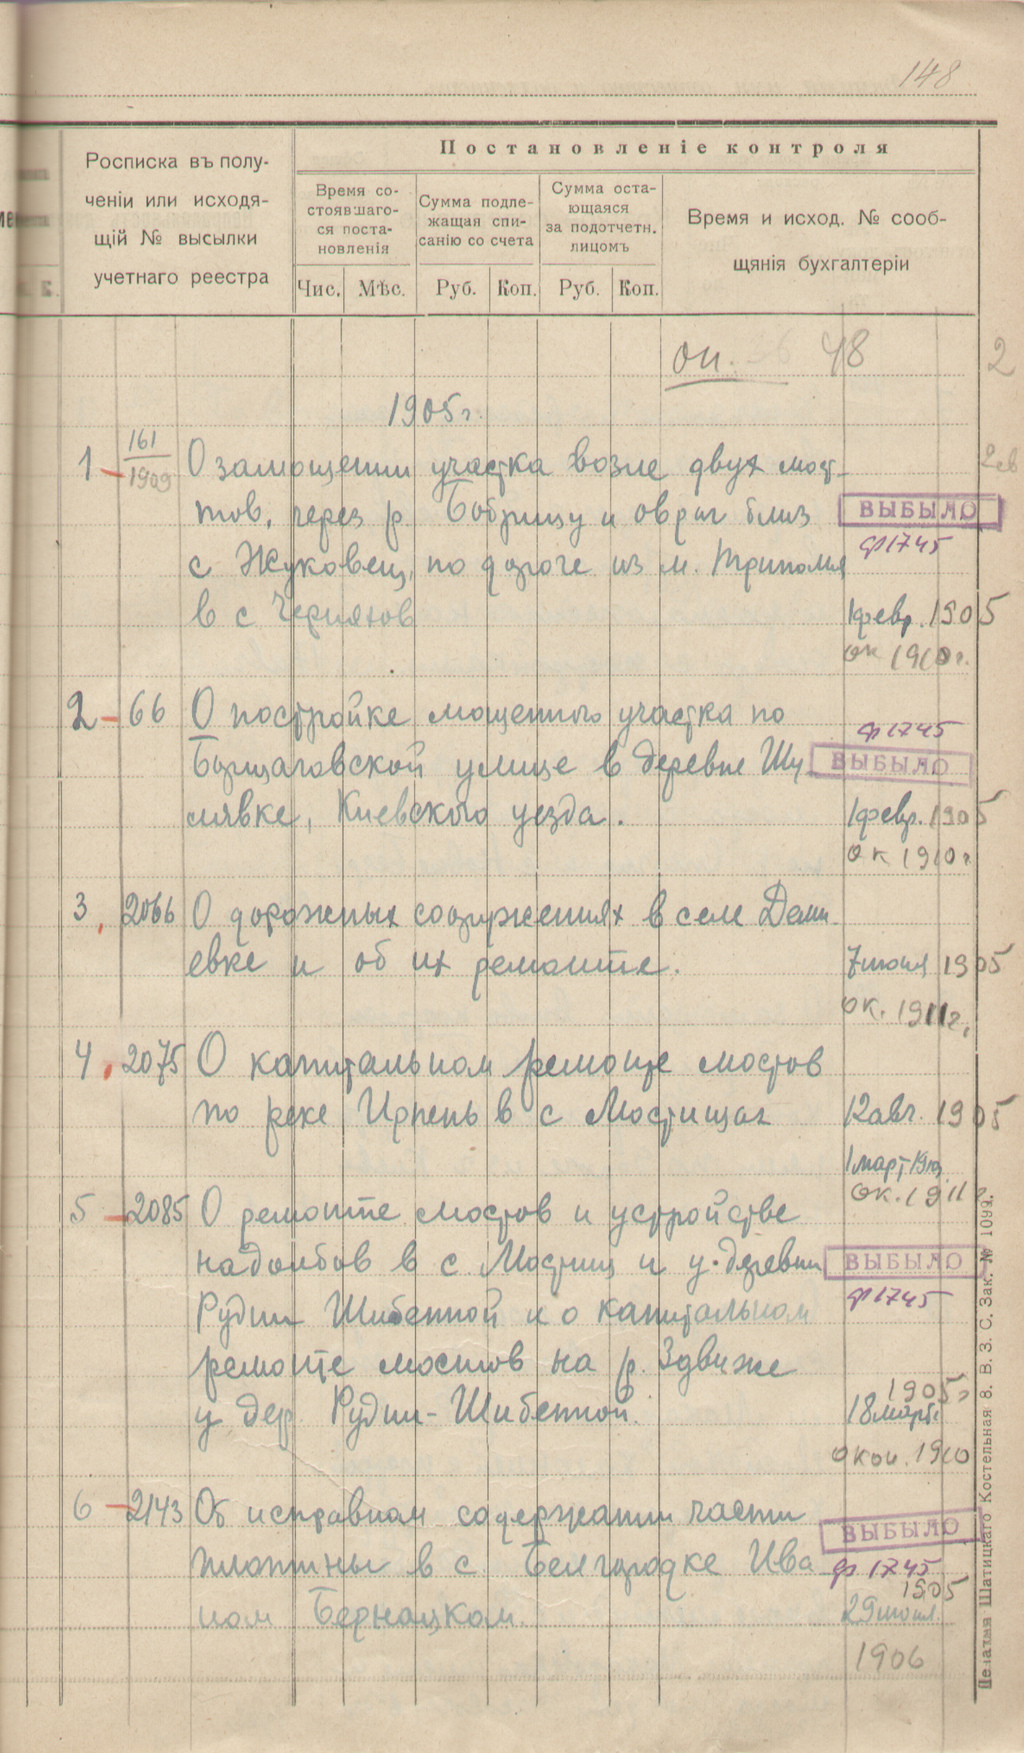 148
Постановленіе контроля
Росписка въ полу-
ченіи или исходя-
щій № высылки
учетнаго реестра
Время со-
стоявшаго-
ся поста-
новленія
Сумма подле-
жащая спи-
санію со счета
Сумма оста-
ющаяся
за подотчетн.
лицомъ
Время и исход. № сооб-
щянія бухгалтеріи
Чис. Мѣс. Руб. Коп. Руб. Коп.
оп. 48
2
1905 г.
1 – 161/1909 О замощении участка возле двух мос-
тов, через р. Бобрицу и овраг близ ВЫБЫЛО
ф 1745
с Жуковец, по дороге из м. Триполия
в с Черняхов 1 февр. 1905
ок 1910 г.
2 – 66 О постройке мощенного участка по
ф 1745
Борщаговской улице в деревне Шу ВЫБЫЛО
лявке, Киевского уезда. 1 февр. 1905
ок 1910 г
3, 2066 О дорожных сооружениях в селе Деми
евке и об их ремонте. 7 июня 1905
ок. 1911 г.
4, 2075 О капитальном ремонте мостов
по реке Ирпень в с Мостищах 12 авг. 1905
1 март
ок. 1911 г
5 – 2085 О ремонте мостов и устройстве
надолбов в с. Мостищ и у деревни ВЫБЫЛО
Рудни Шибенной и о капитальном ф 1745
ремонте мостов на р. Здвиже
1905 г
у дер. Рудни-Шибенной. 18 март
окон. 1910
6 – 2143 Об исправном содержании части
ВЫБЫЛО
плотины в с. Белгородке Ива ф 1745
1905
ном Бернацком. 29 июл.
1906
Печатня Шатицкаго Костельная 8. В. З. С. Зак. № 1099.